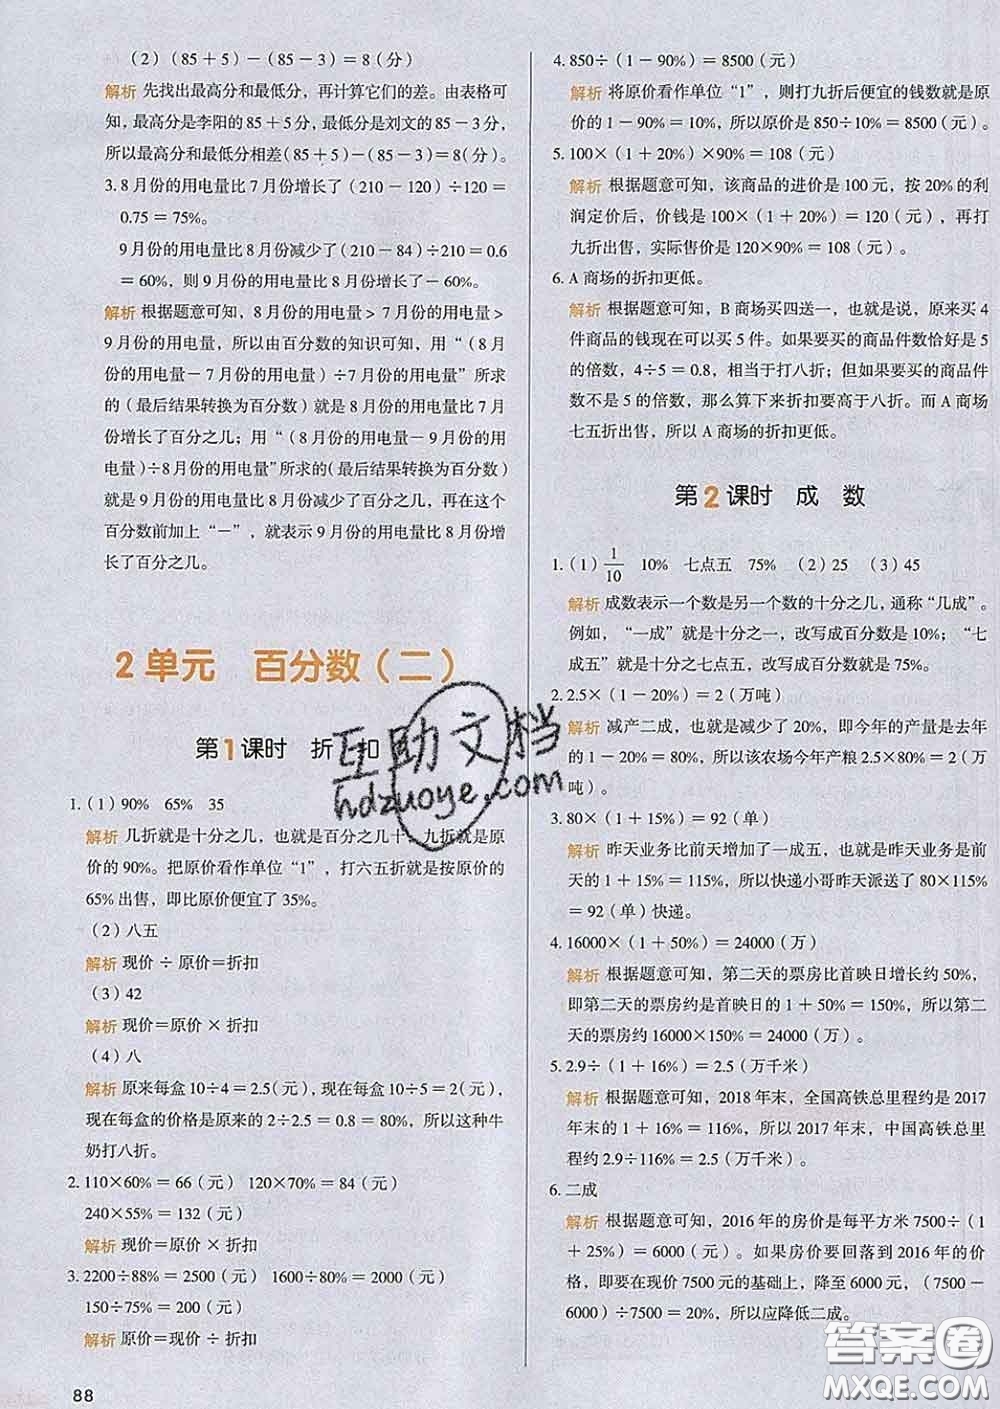 （2）（85＋5）－（85－3）＝8（分）
解析 先找出最高分和最低分，再计算它们的差。由表格可
知，最高分是李阳的85＋5分，最低分是刘文的85－3分，
所以最高分和最低分相差（85＋5）－（85－3）＝8（分）。
3. 8月份的用电量比7月份增长了（210－120）÷120＝
0.75＝75%。
9月份的用电量比8月份减少了（210－84）÷210＝0.6
＝60%，则9月份的用电量比8月份增长了－60%。
解析 根据题意可知，8月份的用电量＞7月份的用电量＞
9月份的用电量，所以由百分数的知识可知，用“（8月
份的用电量－7月份的用电量）÷7月份的用电量”所求
的（最后结果转换为百分数）就是8月份的用电量比7月
份增长了百分之几；用“（8月份的用电量－9月份的用
电量）÷8月份的用电量”所求的（最后结果转换为百分数）
就是9月份的用电量比8月份减少了百分之几，再在这个
百分数前加上“－”，就表示9月份的用电量比8月份增长
了百分之几。
2单元 百分数（二）
第1课时 折 扣
1.（1）90% 65% 35
解析 几折就是十分之几，也就是百分之几十，九折就是原
价的90%。把原价看作单位“1”，打六五折就是按原价的
65%出售，即比原价便宜了35%。
（2）八五
解析 现价÷原价＝折扣
（3）42
解析 现价＝原价×折扣
（4）八
解析 原来每盒10÷4＝2.5（元），现在每盒10÷5＝2（元），
现在每盒的价格是原来的2÷2.5＝0.8＝80%，所以这种牛
奶打八折。
2. 110×60%＝66（元） 120×70%＝84（元）
240×55%＝132（元）
解析 现价＝原价×折扣
3. 2200÷88%＝2500（元） 1600÷80%＝2000（元）
150÷75%＝200（元）
解析 原价＝现价÷折扣
88
4. 850÷（1－90%）＝8500（元）
解析 将原价看作单位“1”，则打九折后便宜的钱数就是原
价的1－90%＝10%，所以原价是850÷10%＝8500（元）。
5. 100×（1＋20%）×90%＝108（元）
解析 根据题意可知，该商品的进价是100元，按20%的利
润定价后，价钱是100×（1＋20%）＝120（元），再打
九折出售，实际售价是120×90%＝108（元）。
6. A商场的折扣更低。
解析 根据题意可知，B商场买四送一，也就是说，原来买4
件商品的钱现在可以买5件。如果要买的商品件数恰好是5
的倍数，4÷5＝0.8，相当于打八折；但如果要买的商品件
数不是5的倍数，那么算下来折扣要高于八折。而A商场
七五折出售，所以A商场的折扣更低。
第2课时 成 数
1.（1）1/10 10% 七点五 75% （2）25 （3）45
解析 成数表示一个数是另一个数的十分之几，通称“几成”。
例如，“一成”就是十分之一，改写成百分数是10%；“七
成五”就是十分之七点五，改写成百分数就是75%。
2. 2.5×（1－20%）＝2（万吨）
解析 减产二成，也就是减少了20%，即今年的产量是去年
的1－20%＝80%，所以该农场今年产粮2.5×80%＝2（万
吨）。
3. 80×（1＋15%）＝92（单）
解析 昨天业务比前天增加了一成五，也就是昨天业务是前
天的1＋15%＝115%，所以快递小哥昨天派送了80×115%
＝92（单）快递。
4. 16000×（1＋50%）＝24000（万）
解析 根据题意可知，第二天的票房比首映日增长约50%，
即第二天的票房约是首映日的1＋50%＝150%，所以第二
天的票房约16000×150%＝24000（万）。
5. 2.9÷（1＋16%）＝2.5（万千米）
解析 根据题意可知，2018年末，全国高铁总里程约是2017
年末的1＋16%＝116%，所以2017年末，中国高铁总里
程约2.9÷116%＝2.5（万千米）。
6. 二成
解析 根据题意可知，2016年的房价是每平方米7500÷（1
＋25%）＝6000（元）。如果房价要回落到2016年的价
格，即要在现价7500元的基础上，降至6000元，（7500－
6000）÷7500＝20%，所以应降低二成。
互助文档
hdzuoye.com
答案圈
MXQE.COM